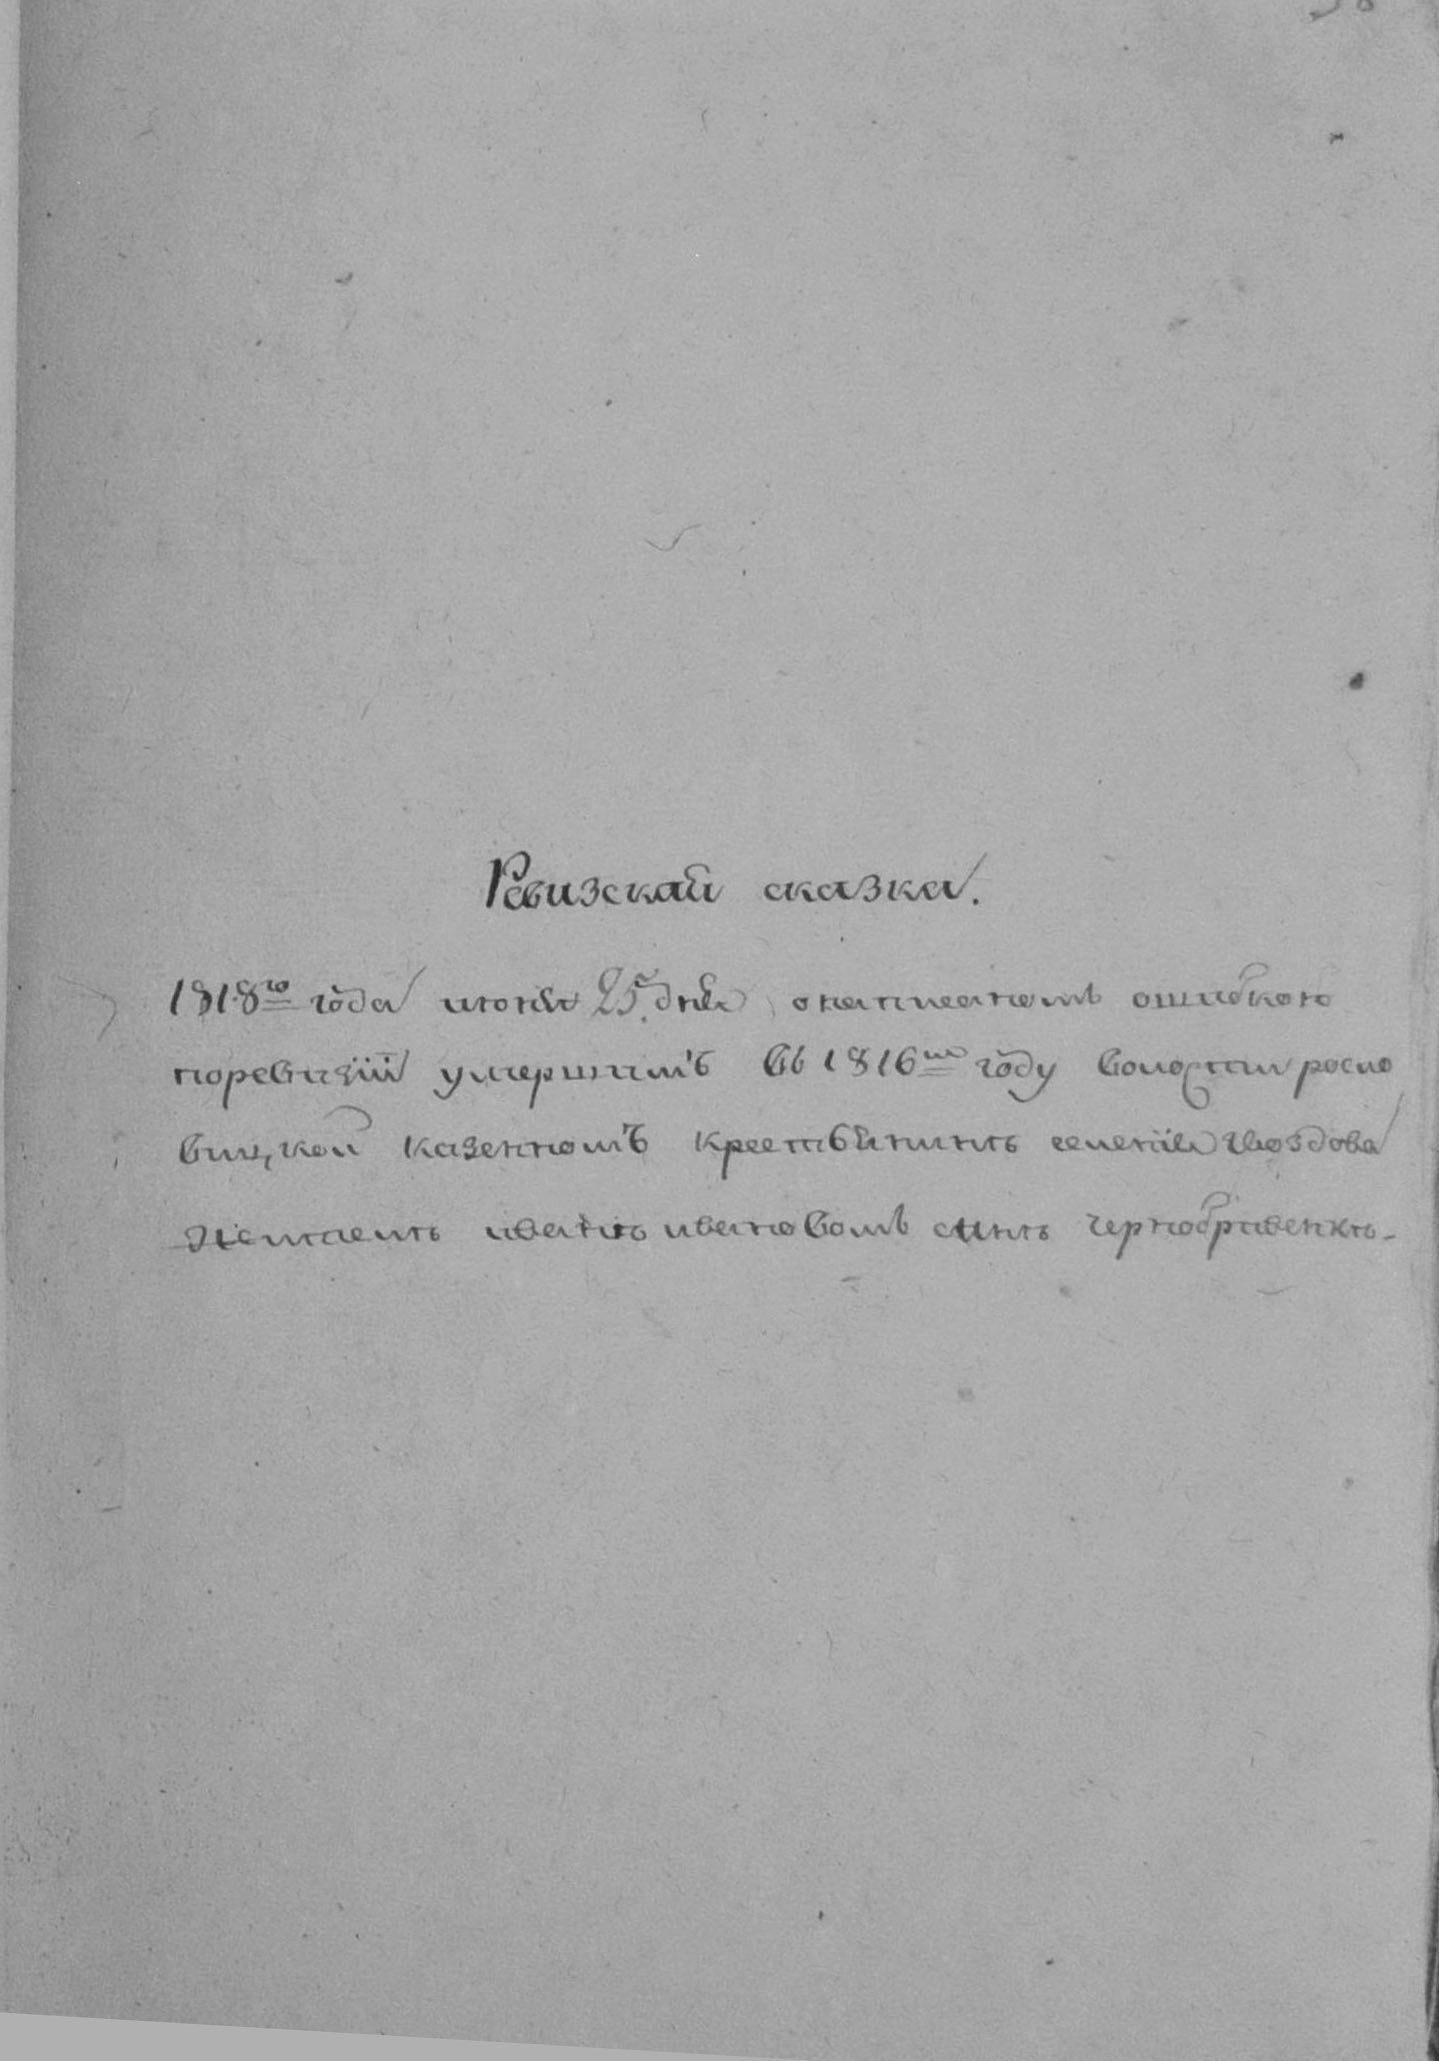 Ревизская сказка.
1818го года июня 25. дня онаписаномъ ошибкою
поревизіи умершимъ въ 1816м году волости роспо
вицкой казенномъ крестьянинѣ селенія Гвоздова
иванѣ ивановомъ сынѣ чернобривенкѣ.